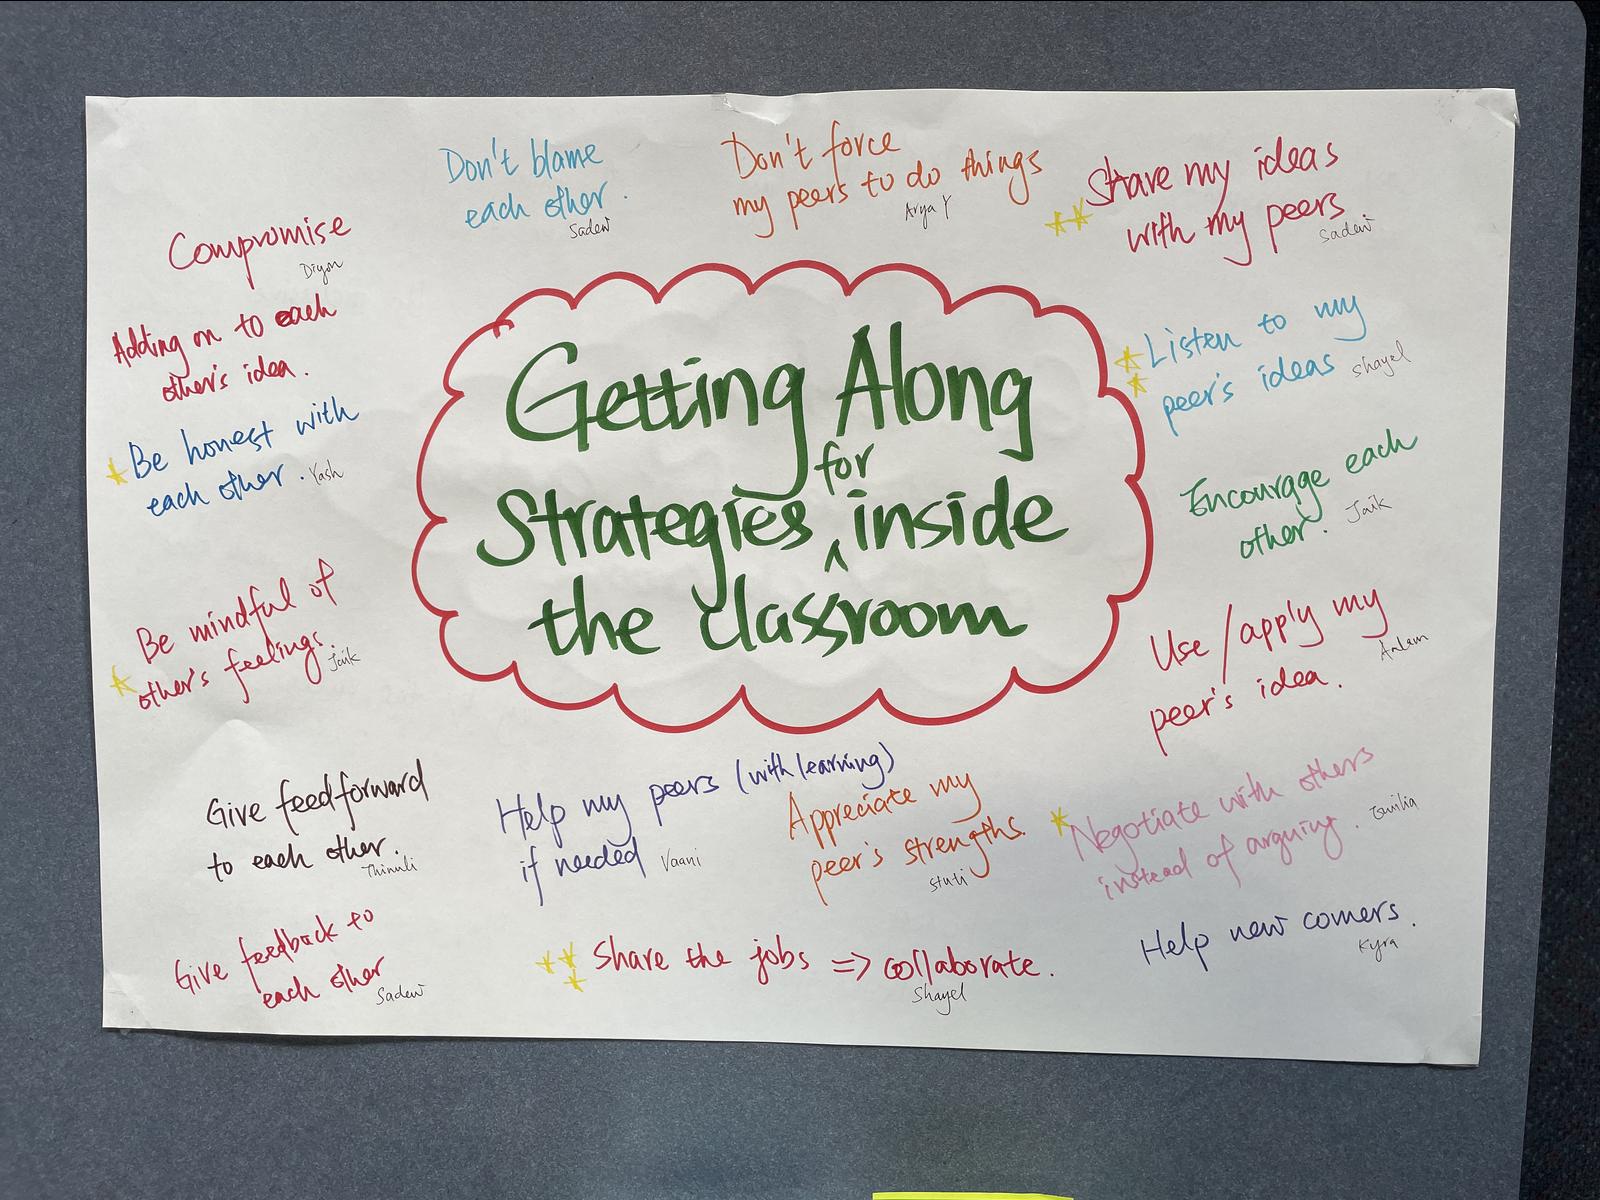 Getting Along
for
Strategies ^ inside
the classroom
Don't blame
each other.
Sadew
Don't force
my peers to do things
Arya Y
Share my ideas
with my peers
Sadew
Compromise
Diyon
Adding on to each
other's idea.
Be honest with
each other. Yash
Be mindful of
other's feelings.
Jaik
Listen to my
peer's ideas Shayel
Encourage each
other. Jaik
Use / apply my
peer's idea.
Give feedforward
to each other.
Thinuli
Help my peers (with learning)
if needed Vaani
Appreciate my
peer's strengths.
Stuti
Negotiate with others
instead of arguing. Emilia
Give feedback to
each other
Sadew
Share the jobs => collaborate.
Shayel
Help new comers.
Kyra